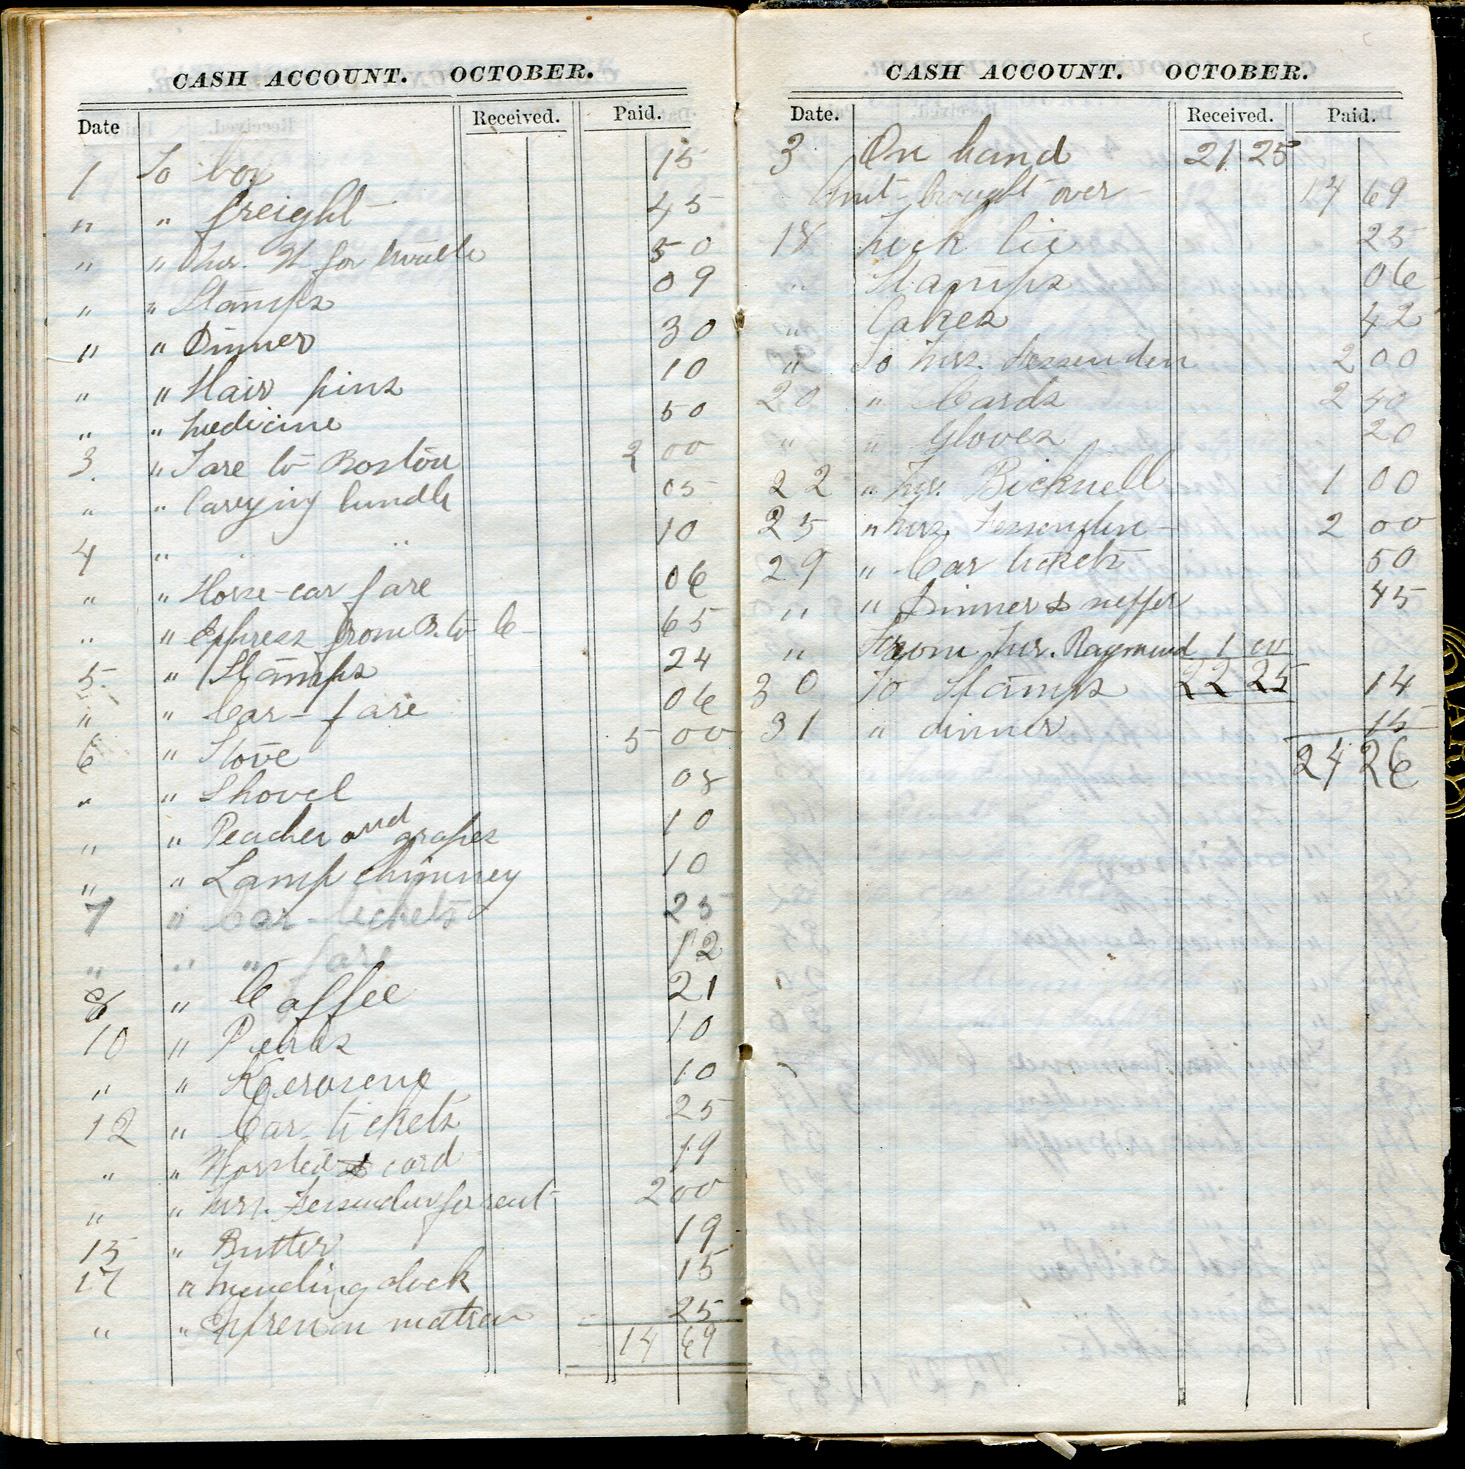 CASH ACCOUNT. OCTOBER.
Date Received. Paid.
1 To box 15
" " freight 45
" " Mr. H. for 50
" " Stamps 09
" " Dinner 30
" " Hair pins 10
" " medicine 50
3. " Fare to Boston 2 00
" " Carrying bundle 05
4 " " " 10
" " Horse-car fare 06
" " Express from B. to C 65
5 " Stamps 24
" " Car-fare 06
6 " Stove 5 00
" " Shovel 08
" " Peaches and grapes 10
" " Lamp chimney 10
7 " Car-tickets 25
" " " fare 12
8 " Coffee 21
10 " 10
" " Kerosene 10
12 " Car tickets 25
" " Worsted & cord 19
" " Mrs. Fessenden for rent 2 00
15 " Butter 19
17 " Mending clock 15
" " Express on 25
14 69
CASH ACCOUNT. OCTOBER.
Date. Received. Paid.
3 On hand 21 25
Amt brought over 14 69
18 Neck tie 25
" Stamps 06
" Cakes 42
" To Mrs. Fessenden 2 00
20 " Cards 2 40
" " Gloves 20
22 " Mr. Bicknell 1 00
25 " Mrs. Fessenden 2 00
29 " Car tickets 50
" " Dinner & supper 45
" From Mr. Raymond 1 00
30 To Stamps 22 25 14
31 " dinner 15
24 26